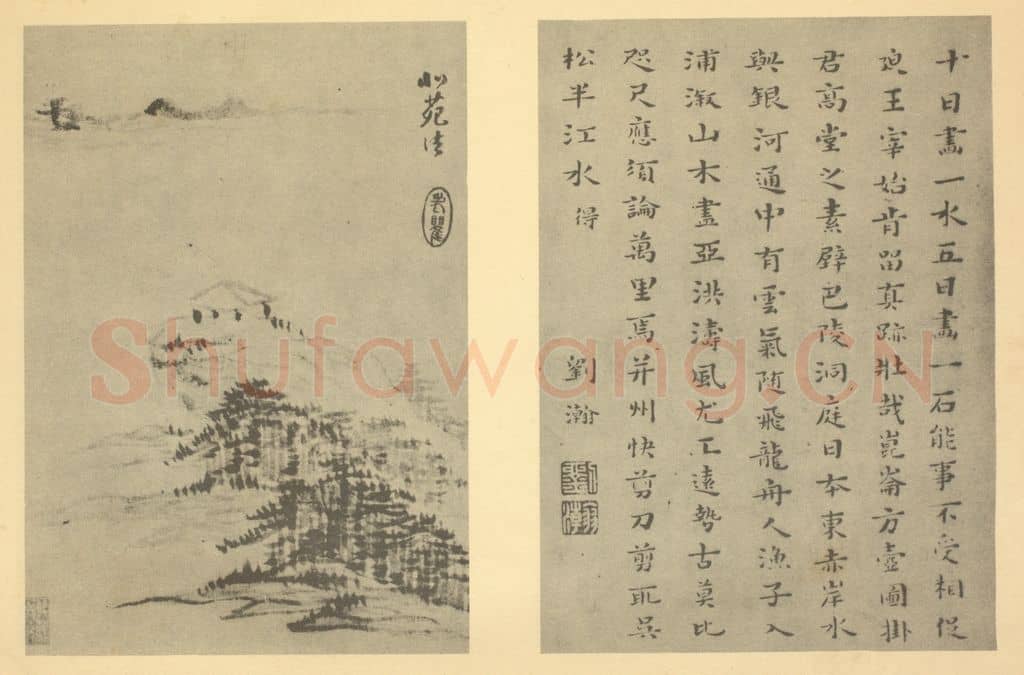 十日畫一水五日畫一石能事不受相促
迫王宰始肯留真跡壯哉崑崙方壺圖掛
君高堂之素壁巴陵洞庭日本東赤岸水
與銀河通中有雲氣随飛龍舟人漁子入
浦溆山木盡亞洪濤風尤工遠勢古莫比
咫尺應須論萬里焉并州快剪刀剪取吳
松半江水 得
劉瀚
劉瀚
北苑法
Shufawang.CN